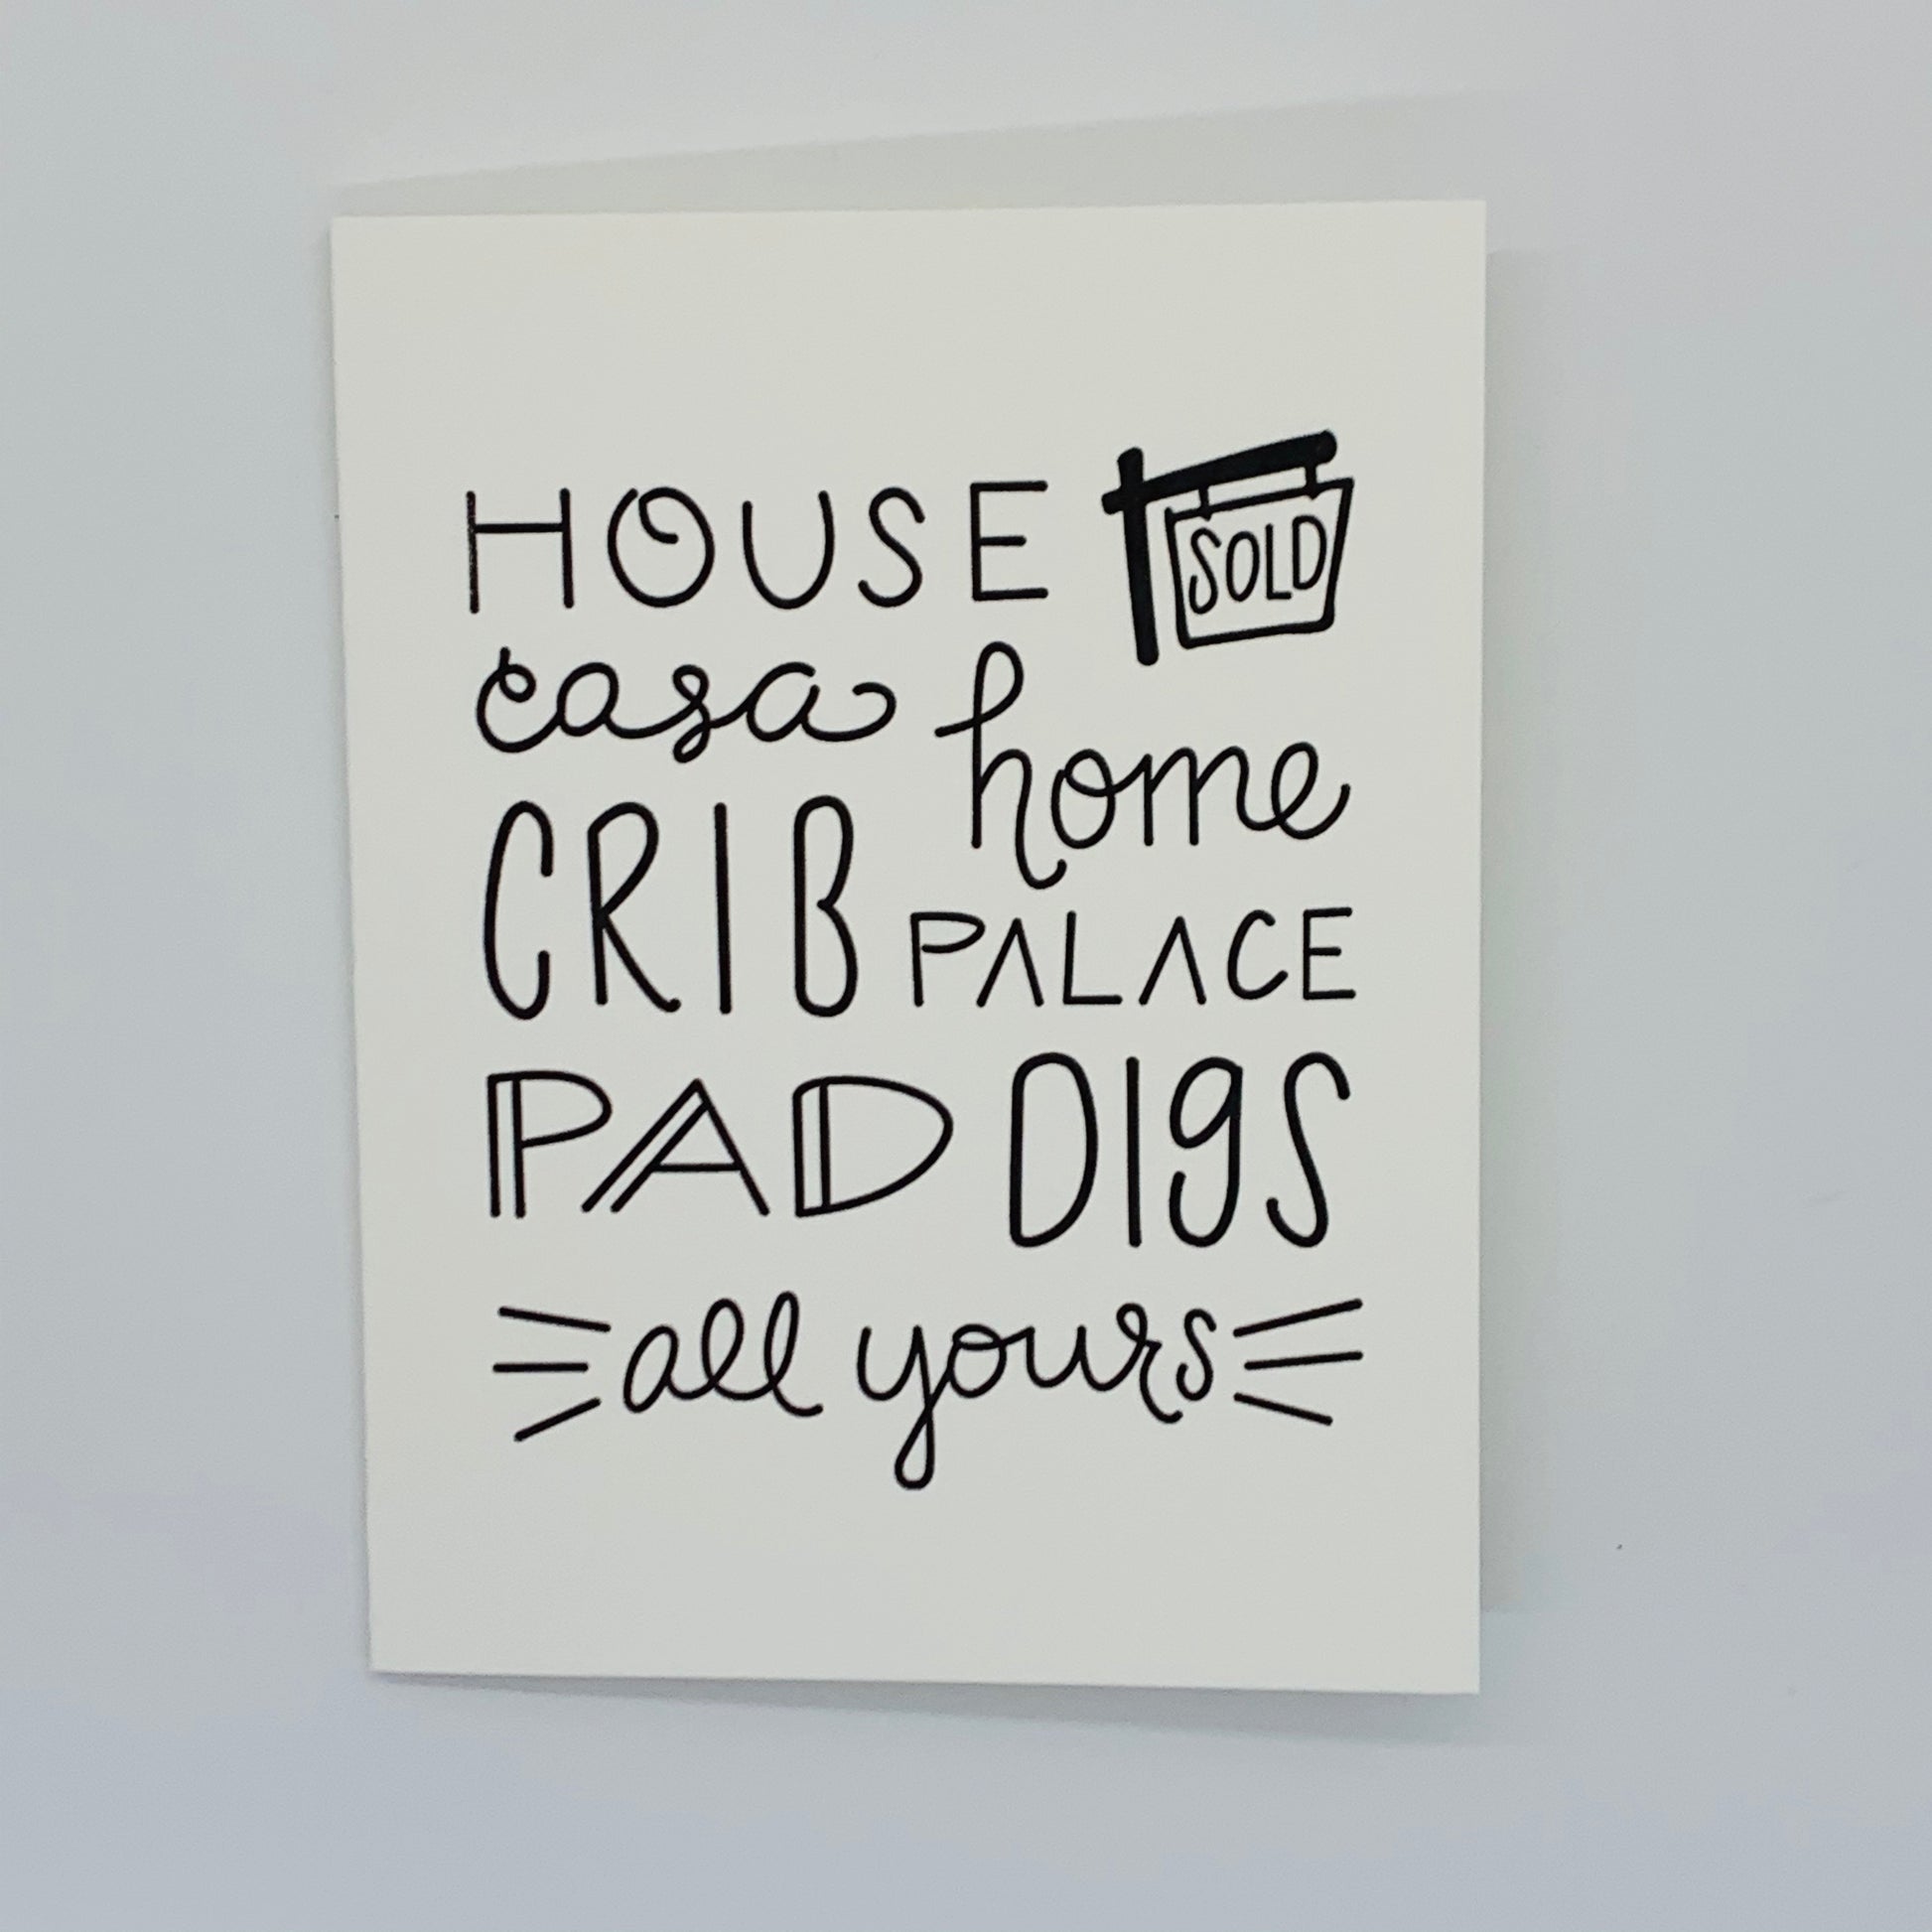 HOUSE SOLD
casa home
CRIB PALACE
PAD DIgS
all yours